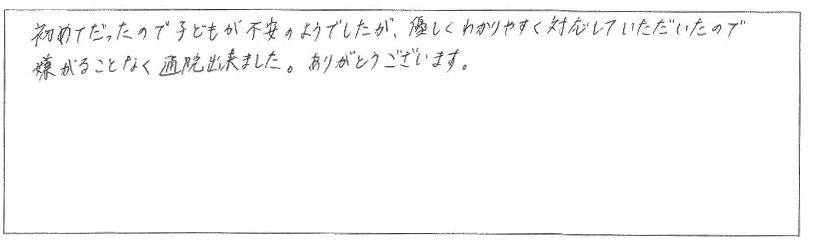 初めてだったので子どもが不安のようでしたが、優しくわかりやすく対応していただいたので
嫌がることなく通院出来ました。ありがとうございます。